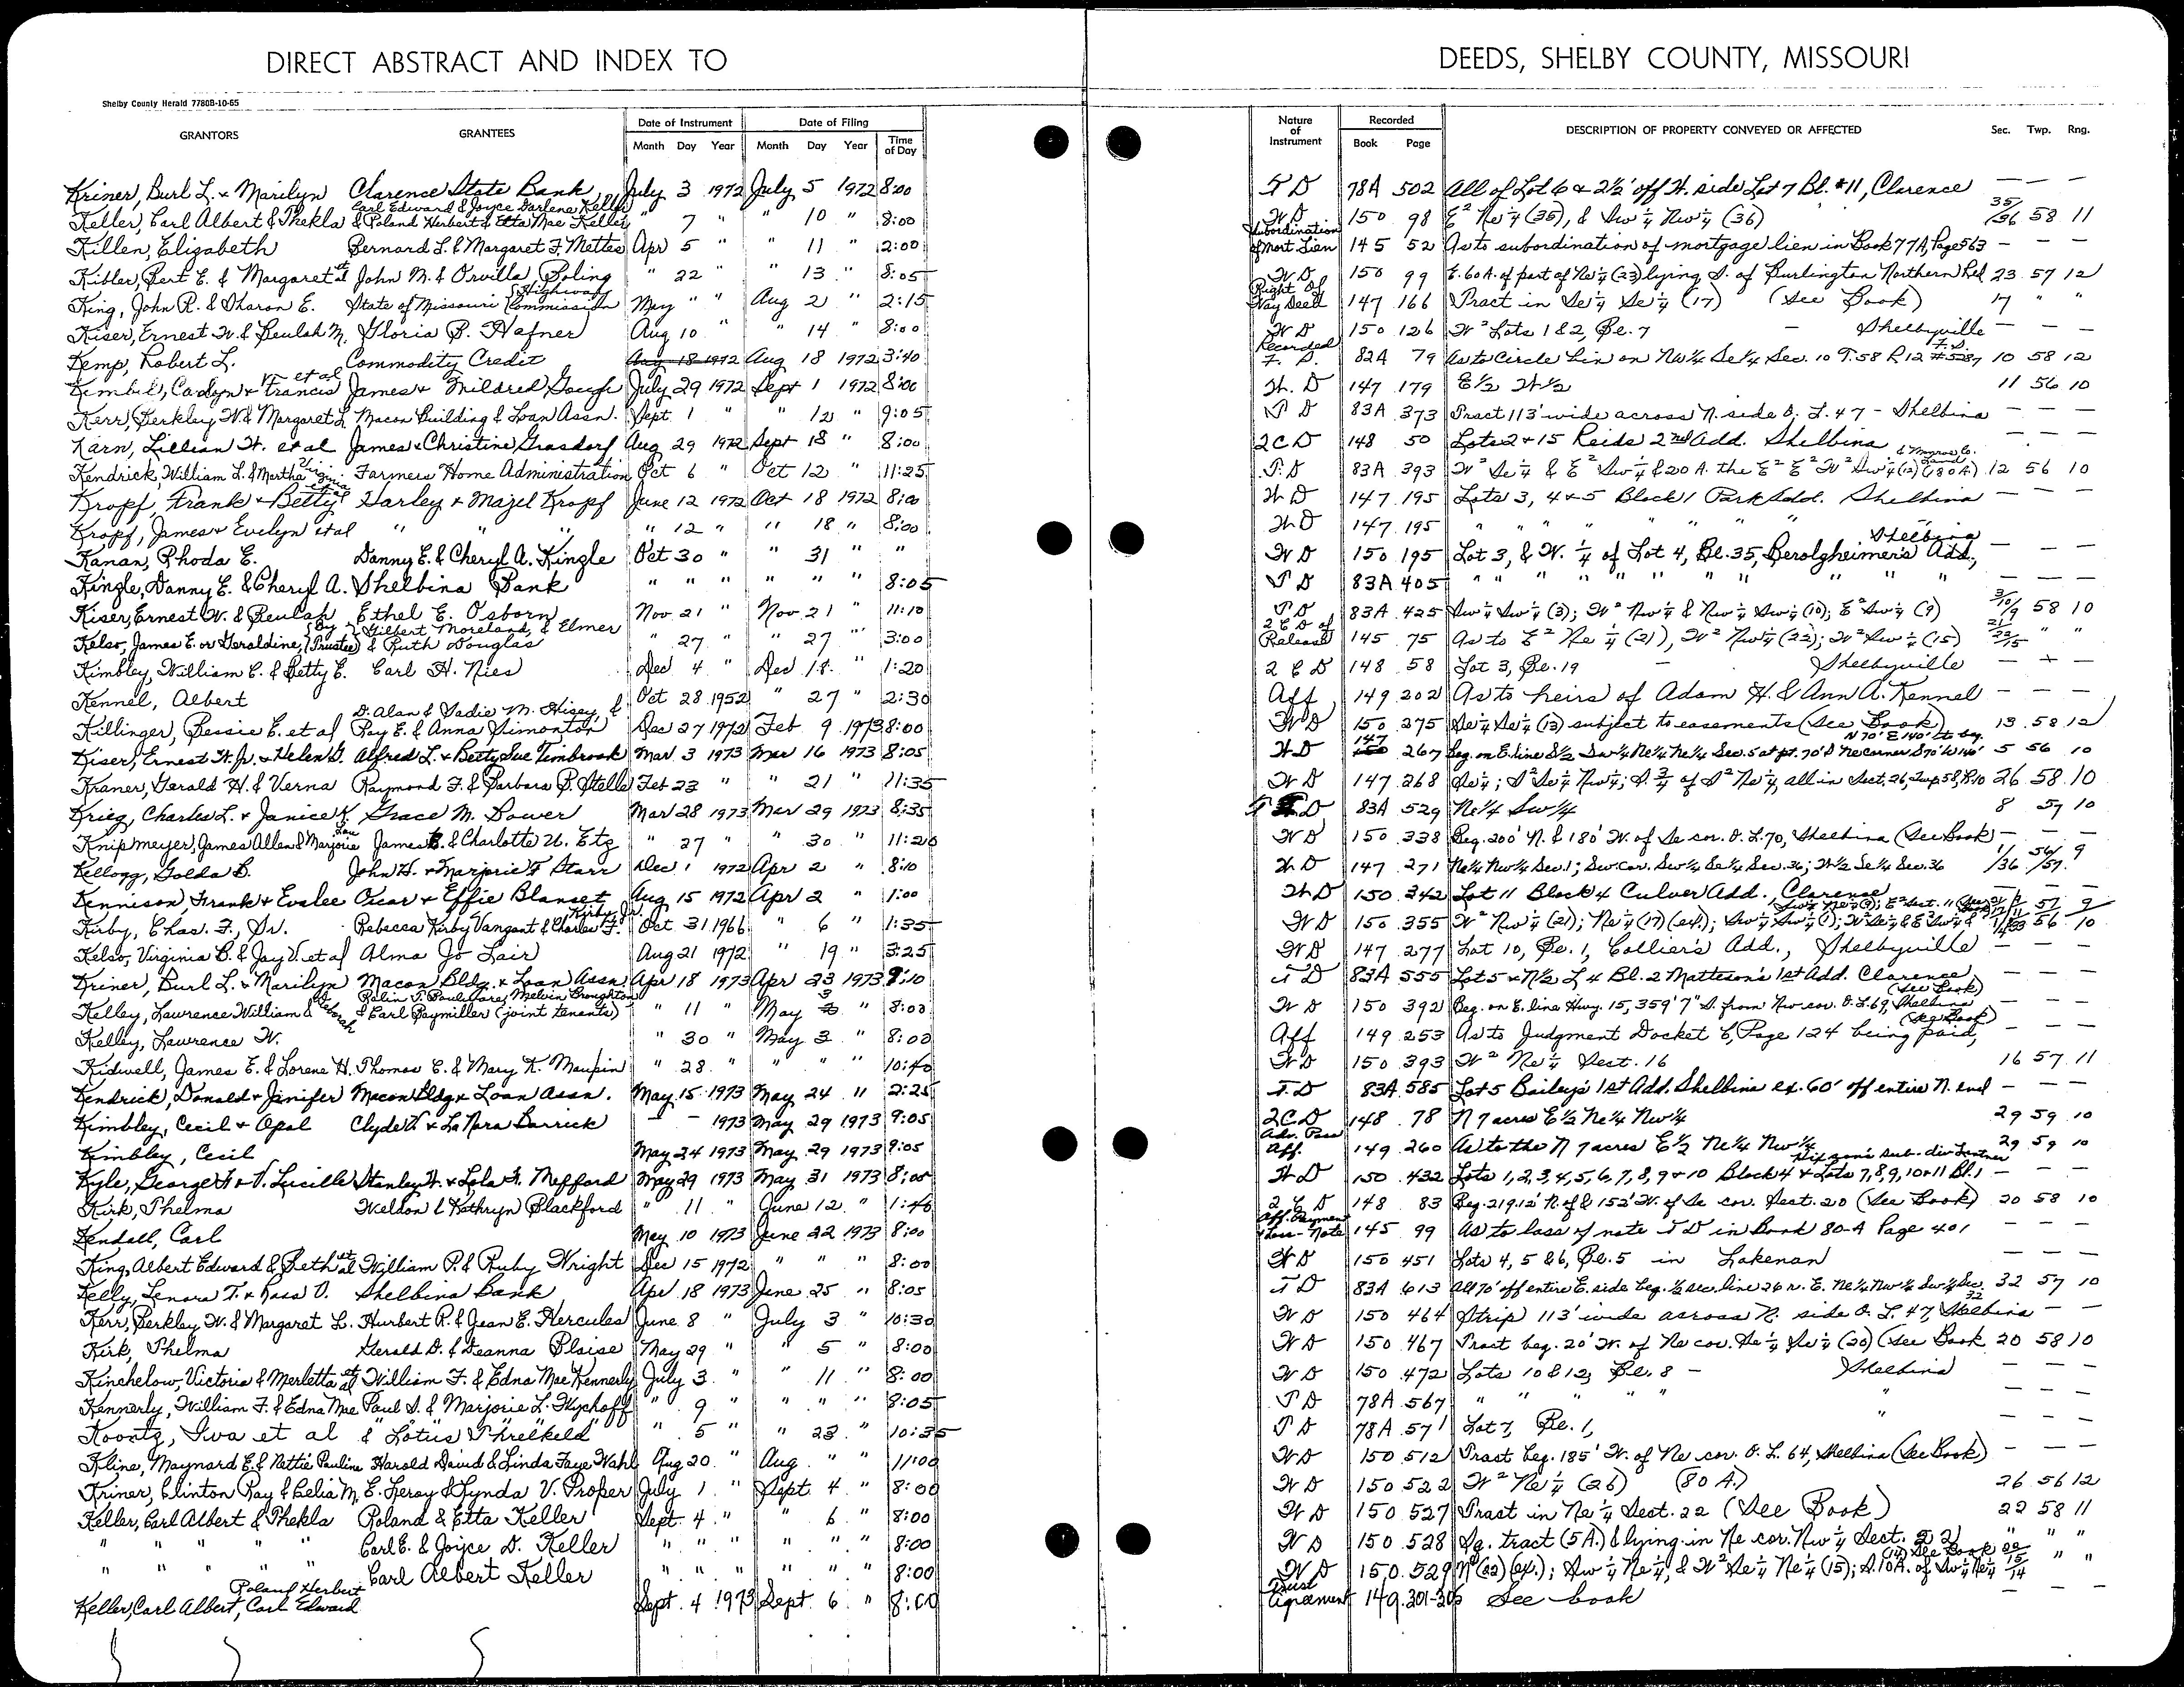 DIRECT ABSTRACT AND INDEX TO DEEDS, SHELBY COUNTY, MISSOURI
Shelby County Herald 7780B-10-65
GRANTORS GRANTEES Date of Instrument Date of Filing Nature of Instrument Recorded DESCRIPTION OF PROPERTY CONVEYED OR AFFECTED Sec. Twp. Rng.
Month Day Year Month Day Year Time of Day Book Page
Kriner, Burl L. + Marilyn Clarence State Bank July 3 1972 July 5 1972 8:00 T D 78A 502 All of Lot 6 & 2½' off W. side Lot 7 Bl. #11, Clarence — — —
Keller, Carl Albert & Thekla Carl Edward & Joyce Darlene Keller & Roland Herbert & Etta Mae Keller " 7 " " 10 " 8:00 W D 150 98 E² Ne ¼ (35), & Sw ¼ Nw ¼ (36) 35/36 58 11
Killen, Elizabeth Bernard L. & Margaret F. Mettes Apr 5 " " 11 " 2:00 Subordination of Mort. Lien 145 52 As to subordination of mortgage lien in Book 77A, Page 563 — — —
Kibler, Bert E. & Margaret et al John M. & Orvilla Poling " 22 " " 13 " 8:05 W D 150 99 E. 60 A. of part of Ne ¼ (23) lying S. of Burlington Northern Rd 23 57 12
King, John R. & Sharon E. State of Missouri (Highway Commission May " " Aug 2 " 2:15 Right Of Way Deed 147 166 Tract in Se ¼ Se ¼ (17) (See Book) 17 " "
Kiser, Ernest W. & Beulah M. Gloria B. Hafner Aug 10 " " 14 " 8:00 W D 150 126 W² Lots 1 & 2, Bl. 7 — Shelbyville — — —
Kemp, Robert L. Commodity Credit Aug 18 1972 Aug 18 1972 3:40 Recorded F. S. 82A 79 As to Circle Lien on Nw ¼ Se ¼ Sec. 10 T. 58 R 12 F.S. #5287 10 58 12
Kimbel, Carolyn + Francis et al James + Mildred Gough July 29 1972 Sept 1 1972 8:00 W. D 147 179 E ½ W ½ 11 56 10
Kerr, Berkley W. & Margaret L Macon Building & Loan Assn. Sept. 1 " " 12 " 9:05 T D 83A 373 Tract 113' wide across N. side O. L. 47 - Shelbina — — —
Karn, Lillian W. et al James + Christine Grasdorf Aug 29 1972 Sept 18 " 8:00 2 C D 148 50 Lots 2 + 15 Reids 2nd Add. Shelbina — — —
Kendrick William L. & Martha Virginia Farmers Home Administration Oct 6 " Oct 12 " 11:25 T. D 83A 393 W² Se ¼ & E² Sw ¼ & 20 A. the E² E² W² Sw ¼ (12) (180 A) & Monroe Co. Land 12 56 10
Kropf, Frank + Betty et al Harley + Mazel Kropf June 12 1972 Oct 18 1972 8:00 W D 147 195 Lots 3, 4 + 5 Block 1 Park Add. Shelbina — — —
Kropf, James + Evelyn et al " " " " 12 " " 18 " 8:00 W D 147 195 " " " " " " " — — —
Kanan, Rhoda E. Danny E. & Cheryl A. Kingle Oct 30 " " 31 " " W D 150 195 Lot 3, & W. ¼ of Lot 4, Bl. 35, Berolzheimer's Add., Shelbina — — —
Kingle, Danny E. & Cheryl A. Shelbina Bank " " " " " " 8:05 T D 83A 405 " " " " " " " " " " — — —
Kiser, Ernest W. & Beulah Ethel E. Osborn Nov 21 " Nov 21 " 11:10 T D 83A 425 Sw ¼ Sw ¼ (3); W² Nw ¼ & Nw ¼ Sw ¼ (10); E² Sw ¼ (9) 3/10/9 58 10
Kelso, James E. or Geraldine, (Trustee) By Gilbert Moreland, & Elmer & Ruth Douglas " 27 " " 27 " 3:00 2 C D of Release 145 75 As to E² Ne ¼ (21), W² Nw ¼ (22); W² Sw ¼ (15) 21/22/15 " "
Kimbley, William C. & Betty E. Carl H. Nies Dec 4 " Dec 18 " 1:20 2 C D 148 58 Lot 3, Bl. 19 — Shelbyville — — —
Kennel, Albert Oct 28 1952 " 27 " 2:30 Aff 149 202 As to heirs of Adam H. & Ann A. Kennel — — —
Killinger, Bessie E. et al D. Alan & Sadie M. Hisey, & Ray E. & Anna Simonton Dec 27 1972 Feb 9 1973 8:00 W D 150 275 Se ¼ Se ¼ (13) subject to easements (See Book) 13 58 12
Kiser, Ernest W. Jr. + Helen G. Alfred L. + Betty Sue Timbrook Mar. 3 1973 Mar 16 1973 8:05 W D 147 267 Beg. on E. line S ½ Sw ¼ Ne ¼ Ne ¼ Sec. 5 at pt. 70' S Ne corner S 70' W 140' N 70' E 140' to beg. 5 56 10
Kraner, Gerald H. & Verna Raymond F. & Barbara P. Stelle Feb 23 " " 21 " 11:35 W D 147 268 Se ¼; S² Se ¼ Nw ¼; S. ¾ of S² Ne ¼, all in Sect. 26, Twp 58, R 10 26 58 10
Krieg, Charles L. + Janice K. Grace M. Bower Mar 28 1973 Mar 29 1973 8:35 T D 83A 529 Ne ¼ Sw ¼ 8 57 10
Knipmeyer, James Allen & Marjorie Lou James B. & Charlotte U. Etz " 27 " " 30 " 11:20 W D 150 338 Beg. 200' N. & 180' W. of Se cor. O. L. 70, Shelbina (See Book) — — —
Kellogg, Golda B. John H. + Marjorie F Starr Dec 1 1972 Apr 2 " 8:10 W D 147 271 Ne ¼ Nw ¼ Sec. 1; Sw Cor. Sw ¼ Se ¼ Sec. 36; W ½ Se ¼ Sec. 36 1/36 56/57 9
Kennison, Frank + Evalee Oscar + Effie Blanset Aug 15 1972 Apr 2 " 1:00 W D 150 342 Lot 11 Block 4 Culver Add., Clarence — — —
Kirby, Chas. F., Sr. Rebecca Kirby Vangant & Charles F. Kirby, Jr. Oct 31 1966 " 6 " 1:35 W D 150 355 W² Nw ¼ (21); Ne ¼ (17) (ex.); Sw ¼ Sw ¼ (1); W² Se ¼ & E² Sw ¼ 56 10
Kelso, Virginia B. & Jay V. et al Alma Jo Lair Aug 21 1972 " 19 " 3:25 W D 147 277 Lot 10, Bl. 1, Collier's Add., Shelbyville — — —
Kriner, Burl L. + Marilyn Macon Bldg. + Loan Assn Apr 18 1973 Apr 23 1973 9:10 T D 83A 555 Lot 5 + N ½ L 4 Bl. 2 Matteson's 1st Add. Clarence — — —
Kelley, Lawrence William & Deborah Melvin Broughton & Earl Raymiller (joint tenants) " 11 " May 3 " 8:00 W D 150 392 Beg. on E. line Hwy. 15, 359' 7" S. from Nw cor. O. L. 69, Shelbina (See Book) — — —
Kelley, Lawrence W. " 30 " May 3 " 8:00 Aff 149 253 As to Judgment Docket E, Page 124 being paid, (See Book) — — —
Kidwell, James E. & Lorene H. Thomas E. & Mary K. Maupin " 28 " " " " 10:40 W D 150 393 W² Ne ¼ Sect. 16 16 57 11
Kendrick, Donald + Jenifer Macon Bldg + Loan Assn. May 15 1973 May 24 " 2:25 T. D 83A 585 Lot 5 Bailey's 1st Add. Shelbina ex. 60' off entire N. end — — —
Kimbley, Cecil + Opal Clyde V. + La Nora Barrick — — 1973 May 29 1973 9:05 2 C. D 148 78 N 7 acres E ½ Ne ¼ Nw ¼ 29 59 10
Kimbley, Cecil May 24 1973 May 29 1973 9:05 Adv. Poss Aff. 149 260 As to the N 7 acres E ½ Ne ¼ Nw ¼ 29 59 10
Kyle, George F. + V. Lucille Stanley H. + Lola F. Mefford May 29 1973 May 31 1973 8:00 W D 150 432 Lots 1,2,3,4,5,6,7,8,9 + 10 Block 4 + Lots 7,8,9,10 + 11 Bl. 1 Hixson's Sub-div Lentner — — —
Kirk, Thelma Weldon & Kathryn Blackford " 11 " June 12 " 1:40 2 C D 148 83 Beg. 219.12' N. of & 152' W. of Se cor. Sect. 20 (See Book) 20 58 10
Kendall, Carl May 10 1973 June 22 1973 8:00 Aff. Payment + Loss - Note 145 99 As to loss of note T D in Book 80-A Page 401 — — —
King, Albert Edward & Beth et al William P. & Ruby Wright Dec 15 1972 " " " 8:00 W D 150 451 Lots 4, 5 & 6, Bl. 5 in Lakenan — — —
Kelly, Lenora T. + Ross O. Shelbina Bank Apr 18 1973 June 25 " 8:05 T D 83A 613 All 70' off entire E. side beg. ½ sec. line 26 r. E. Ne ¼ Nw ¼ Sw ¼ Sec. 32 32 57 10
Kerr, Berkley W. & Margaret L. Hurbert R. & Jean E. Hercules June 8 " July 3 " 10:30 W D 150 464 Strip 113' wide across N. side O. L. 47, Shelbina — —
Kirk, Thelma Gerald D. & Deanna Blaise May 29 " " 5 " 8:00 W D 150 467 Tract beg. 20' W. of Ne cor. Se ¼ Se ¼ (20) (See Book 20 58 10
Kinchelow, Victoria & Merletta et al William F. & Edna Mae Kennerly July 3 " " 11 " 8:00 W D 150 472 Lots 10 & 12, Bl. 8 — Shelbina — — —
Kennerly, William F. & Edna Mae Paul S. & Marjorie L. Wychoff " 9 " " " " 8:05 T D 78A 567 " " " " " — — —
Koontz, Iva et al & Lotus Threlkeld " 5 " " 23 " 10:35 T D 78A 571 Lot 7, Bl. 1, " — — —
Kline, Maynard E. & Nettie Pauline Harold David & Linda Faye Wahl Aug 20 " Aug. " " 11:00 W D 150 512 Tract beg. 185' W. of Ne cor. O. L. 64, Shelbina (See Book) — — —
Kriner, Clinton Ray & Celia M. E. Leroy & Lynda V. Proper July 1 " Sept. 4 " 8:00 W D 150 522 W² Ne ¼ (26) (80 A.) 26 56 12
Keller, Carl Albert & Thekla Roland & Etta Keller Sept. 4 " " 6 " 8:00 W D 150 527 Tract in Ne ¼ Sect. 22 (See Book) 22 58 11
" " " " " Carl E. & Joyce D. Keller " " " " " " 8:00 W D 150 528 Sq. tract (5 A.) lying in Ne cor. Nw ¼ Sect. 22 " " "
" " " " " Carl Albert Keller " " " " " " 8:00 W D 150 529 N² (22) (ex.); Sw ¼ Ne ¼, & W² Se ¼ Ne ¼ (15); S. 10 A. of Sw ¼ Ne ¼ (14) See Book 22/15/14 " "
Keller, Carl Albert, Carl Edward Roland Herbert Sept. 4 1973 Sept. 6 " 8:00 Trust Agreement 149 301-306 See book — — —